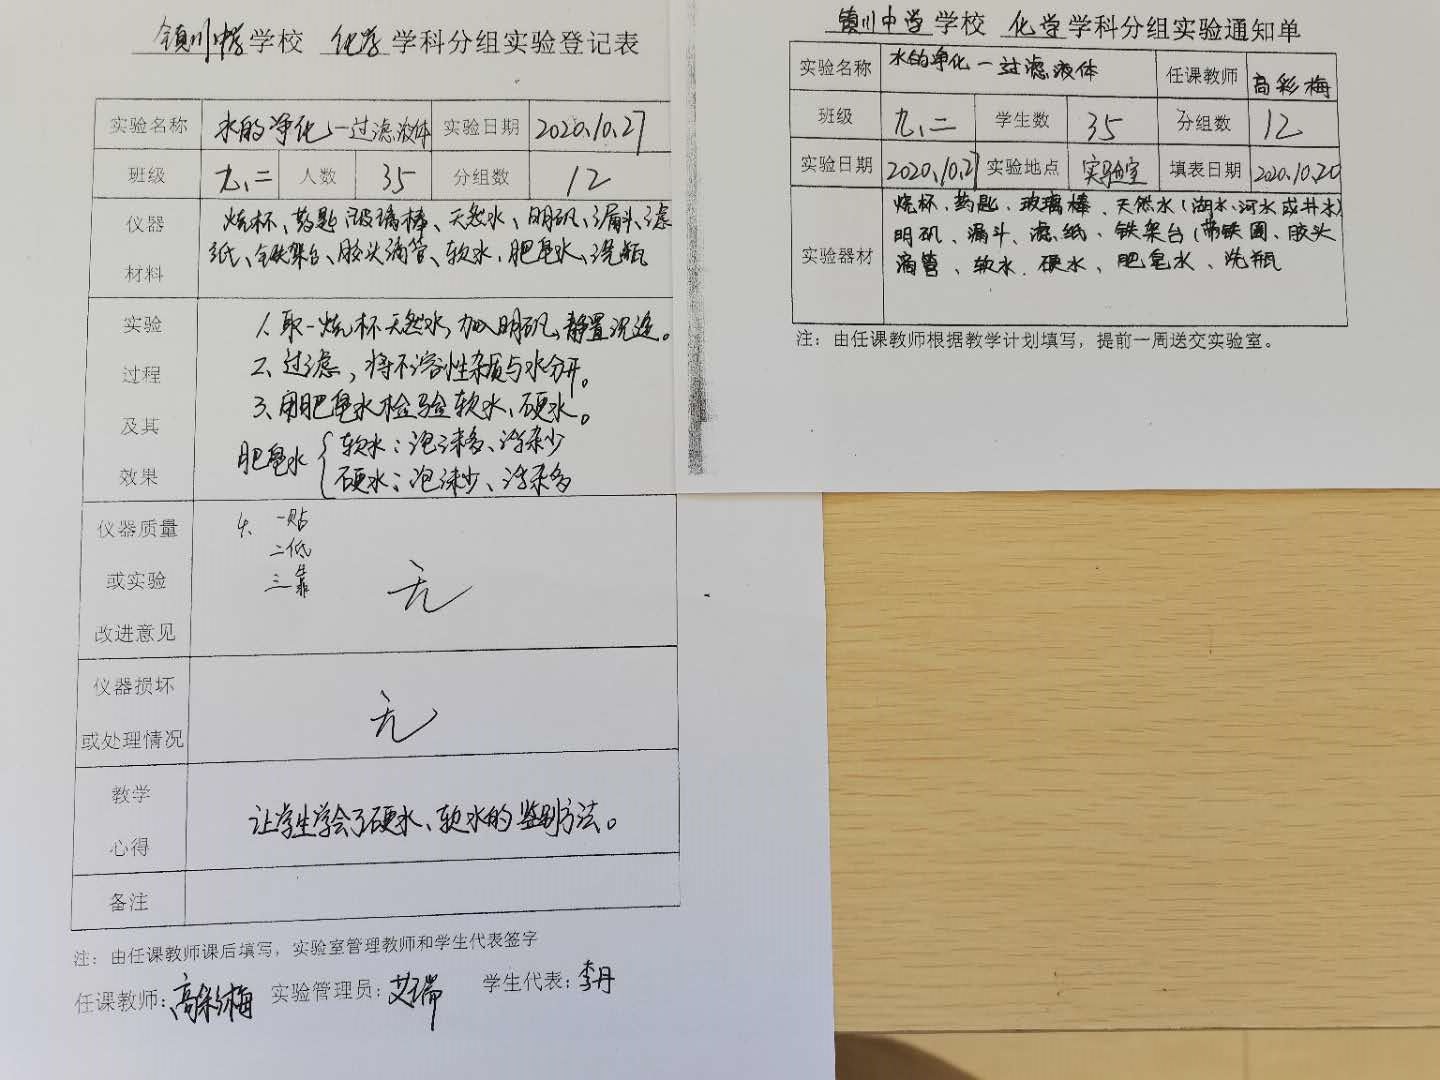 镇川中学学校 化学学科分组实验登记表
实验名称 水的净化-过滤液体 实验日期 2020.10.27
班级 九、二 人数 35 分组数 12
仪器材料 烧杯、药匙、玻璃棒、天然水、明矾、漏斗、滤
纸、铁架台、胶头滴管、软水、肥皂水、洗瓶
实验过程及其效果
1、取一烧杯天然水,加入明矾,静置沉淀。
2、过滤,将不溶性杂质与水分开。
3、用肥皂水检验软水、硬水。
肥皂水 软水:泡沫多、浮杂少
硬水:泡沫少、浮杂多
仪器质量或实验改进意见
4、一贴
二低
三靠
无
仪器损坏或处理情况 无
教学心得 让学生学会了硬水、软水的鉴别方法。
备注
注:由任课教师课后填写,实验室管理教师和学生代表签字
任课教师:高彩梅 实验管理员:艾瑞 学生代表:李丹
镇川中学学校 化学学科分组实验通知单
实验名称 水的净化-过滤液体 任课教师 高彩梅
班级 九、二 学生数 35 分组数 12
实验日期 2020.10.27 实验地点 实验室 填表日期 2020.10.20
实验器材 烧杯、药匙、玻璃棒、天然水(湖水、河水或井水)
明矾、漏斗、滤纸、铁架台(带铁圈、胶头
滴管、软水、硬水、肥皂水、洗瓶
注:由任课教师根据教学计划填写,提前一周送交实验室。